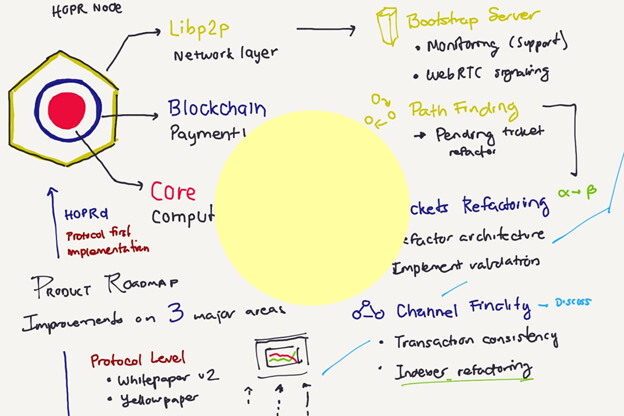 HOPR Node
Libp2p
Network layer
Blockchain
Core
HOPRd
Protocol first
implementation
Product Roadmap
Improvements on 3 major areas
Protocol Level
• Whitepaper v2
• Yellowpaper
Bootstrap Server
• Monitoring (Support)
• WebRTC signaling
Path Finding
→ Pending ticket
refactor
α → β
Refactoring
architecture
Implement validation
Channel Finality - Discuss
• Transaction consistency
• Indexer refactoring